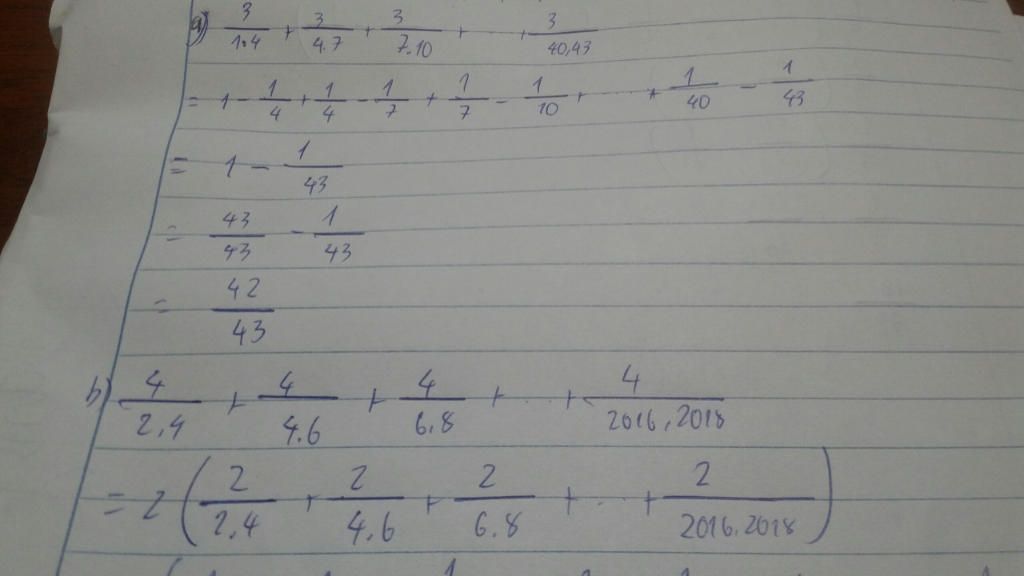 a) 3/1.4 + 3/4.7 + 3/7.10 + ... + 3/40.43
= 1 - 1/4 + 1/4 - 1/7 + 1/7 - 1/10 + ... + 1/40 - 1/43
= 1 - 1/43
= 43/43 - 1/43
= 42/43
b) 4/2.4 + 4/4.6 + 4/6.8 + ... + 4/2016.2018
= 2 (2/2.4 + 2/4.6 + 2/6.8 + ... + 2/2016.2018)